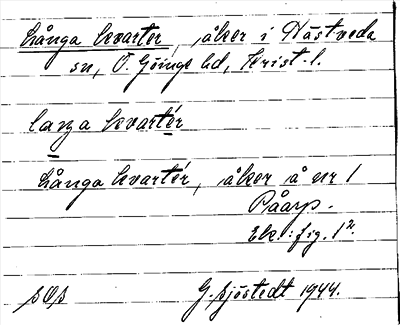 Långa kvarter, åker i Hästveda
sn, Ö. Göinge hd, Krist. l.
laŋa kvartér
Långa kvartér, åker å nr 1
Påarp.
Ek.: fig. 12.
SOS G. Sjöstedt 1944.